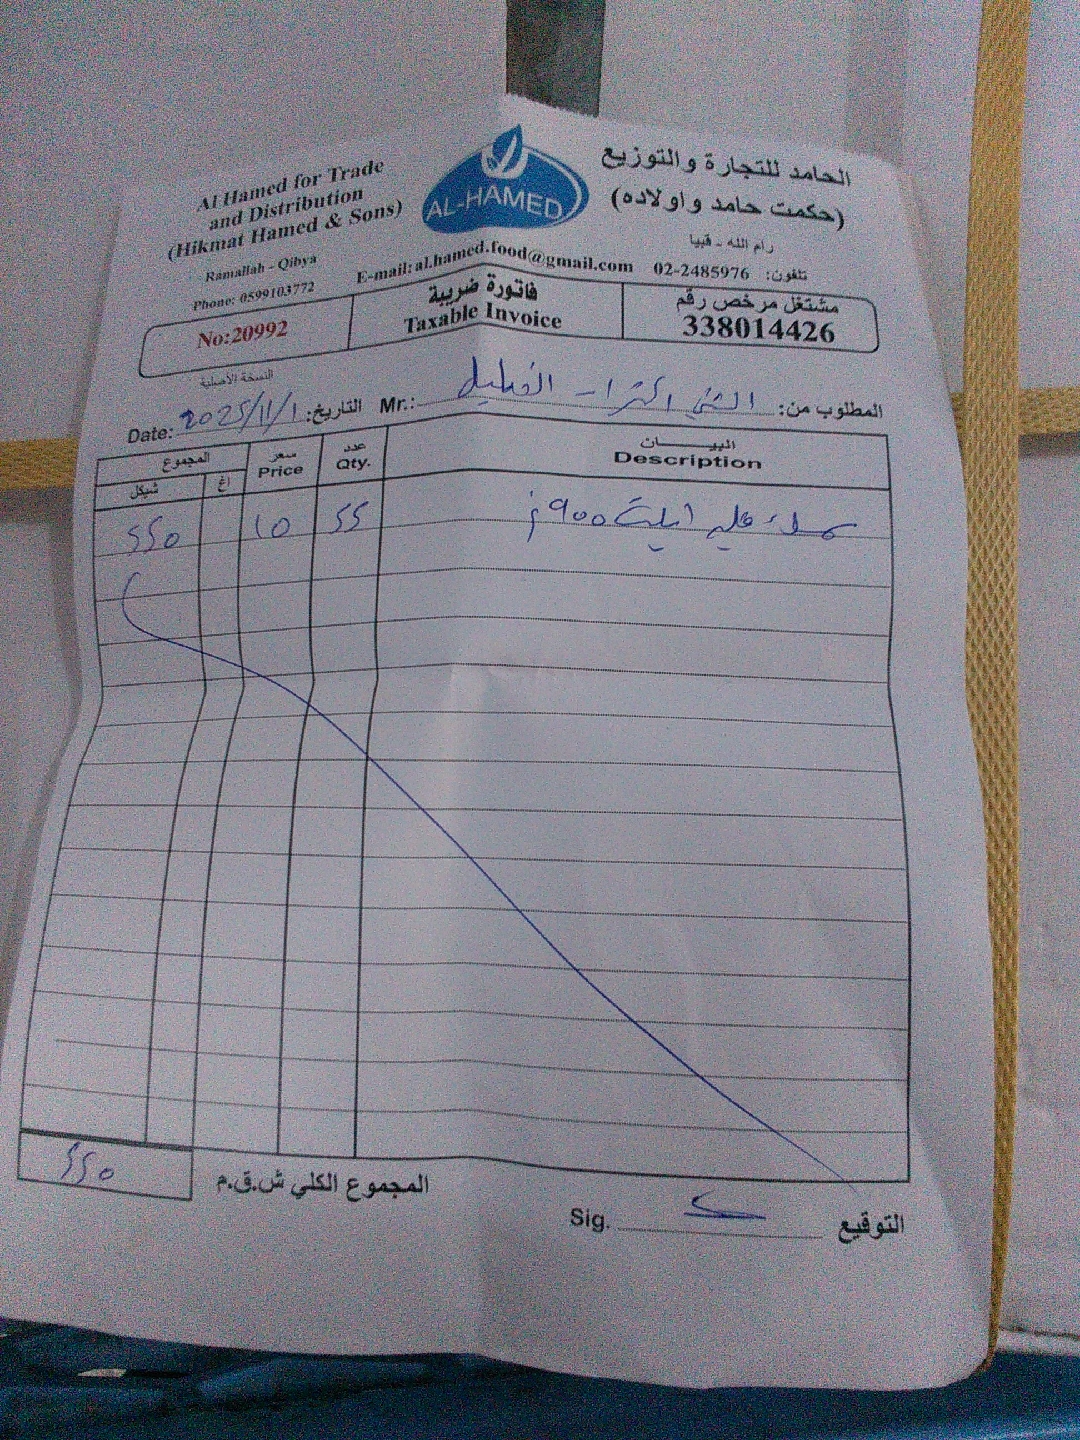 Al Hamed for Trade
and Distribution
(Hikmat Hamed & Sons)
Ramallah - Qibya
Phone: 0599103772
AL-HAMED
الحامد للتجارة والتوزيع
(حكمت حامد و اولاده)
رام الله - قبيا
تلفون: 02-2485976
E-mail: al.hamed.food@gmail.com
No:20992
فاتورة ضريبة
Taxable Invoice
مشتغل مرخص رقم
338014426
النسخة الأصلية
Date: 2025/11/1 التاريخ:
Mr.: المطلوب من:
المجموع
شيكل
اغ
سعر
Price
عدد
Qty.
البيـــــــان
Description
550 10 55 900
550
المجموع الكلي ش.ق.م
Sig. التوقيع